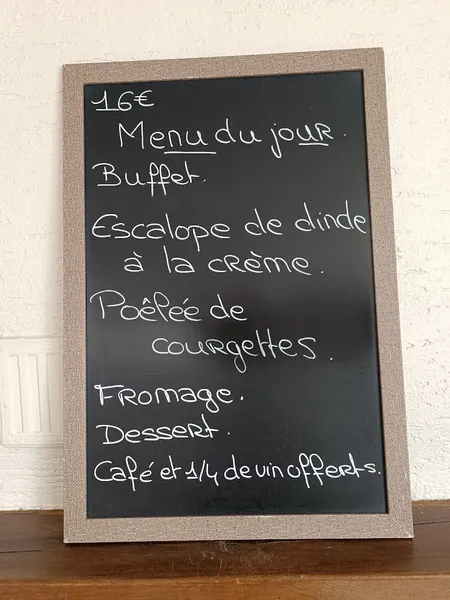 16€
Menu du jour.
Buffet.
Escalope de dinde
à la crème.
Poêlée de
courgettes.
Fromage.
Dessert.
Café et 1/4 de vin offerts.